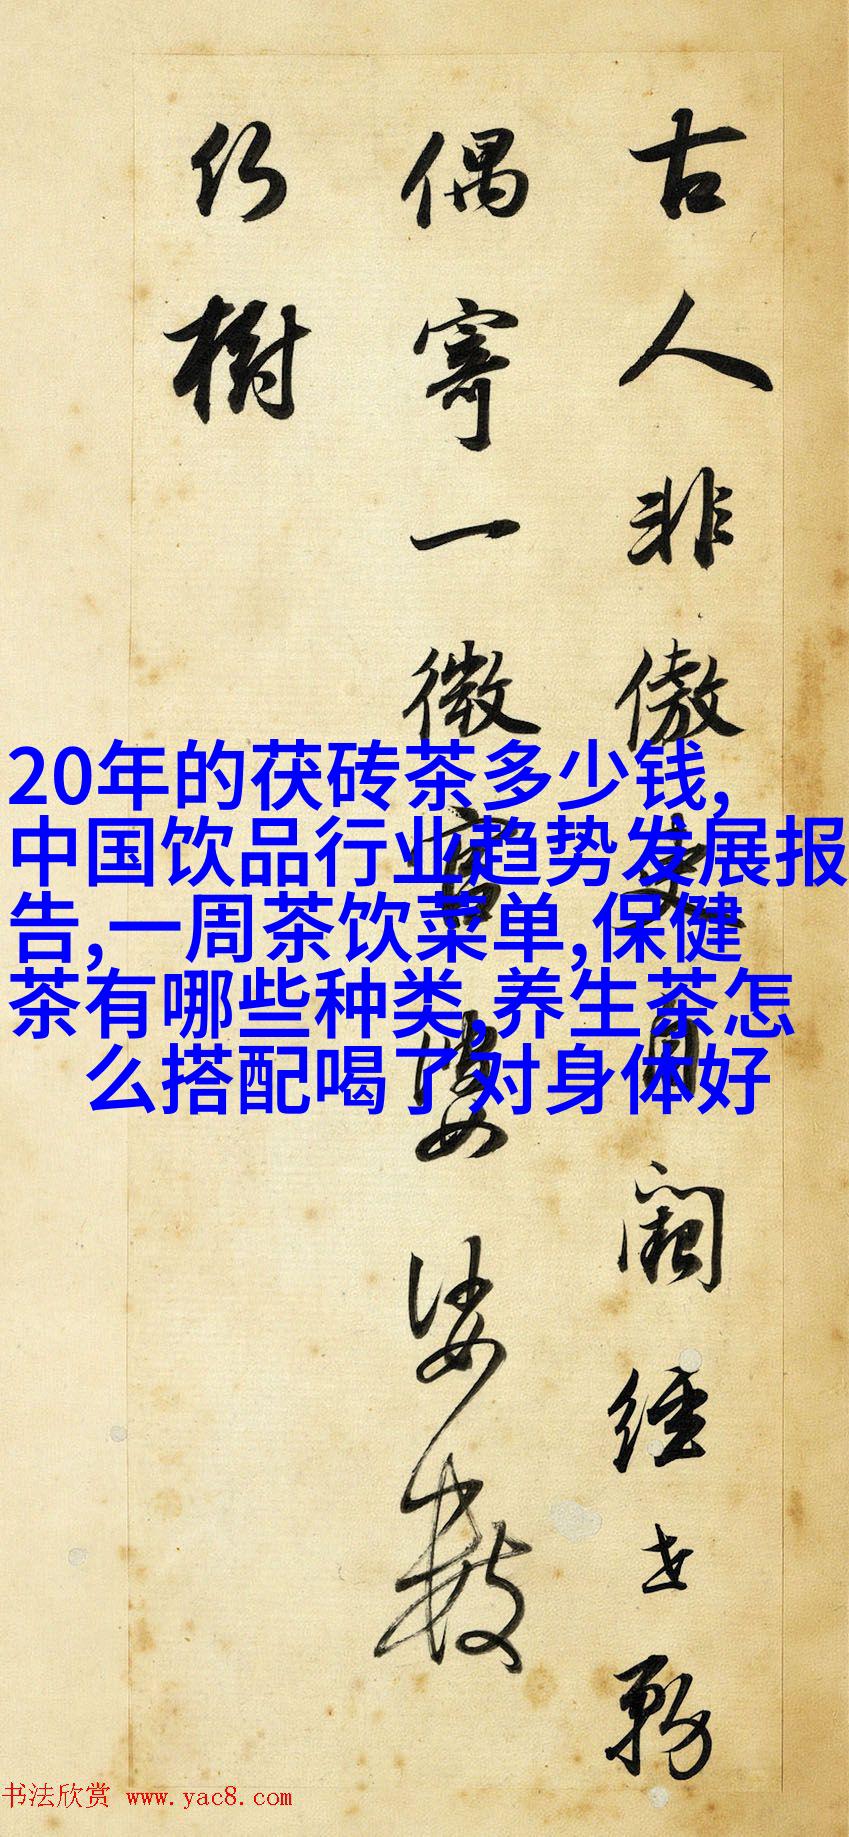 古人非傲吏自阙经世务
偶寄一微官婆娑数
行树
20年的茯砖茶多少钱,
中国饮品行业趋势发展报
告,一周茶饮菜单,保健
茶有哪些种类,养生茶怎
么搭配喝了对身体好
书法欣赏 www.yac8.com